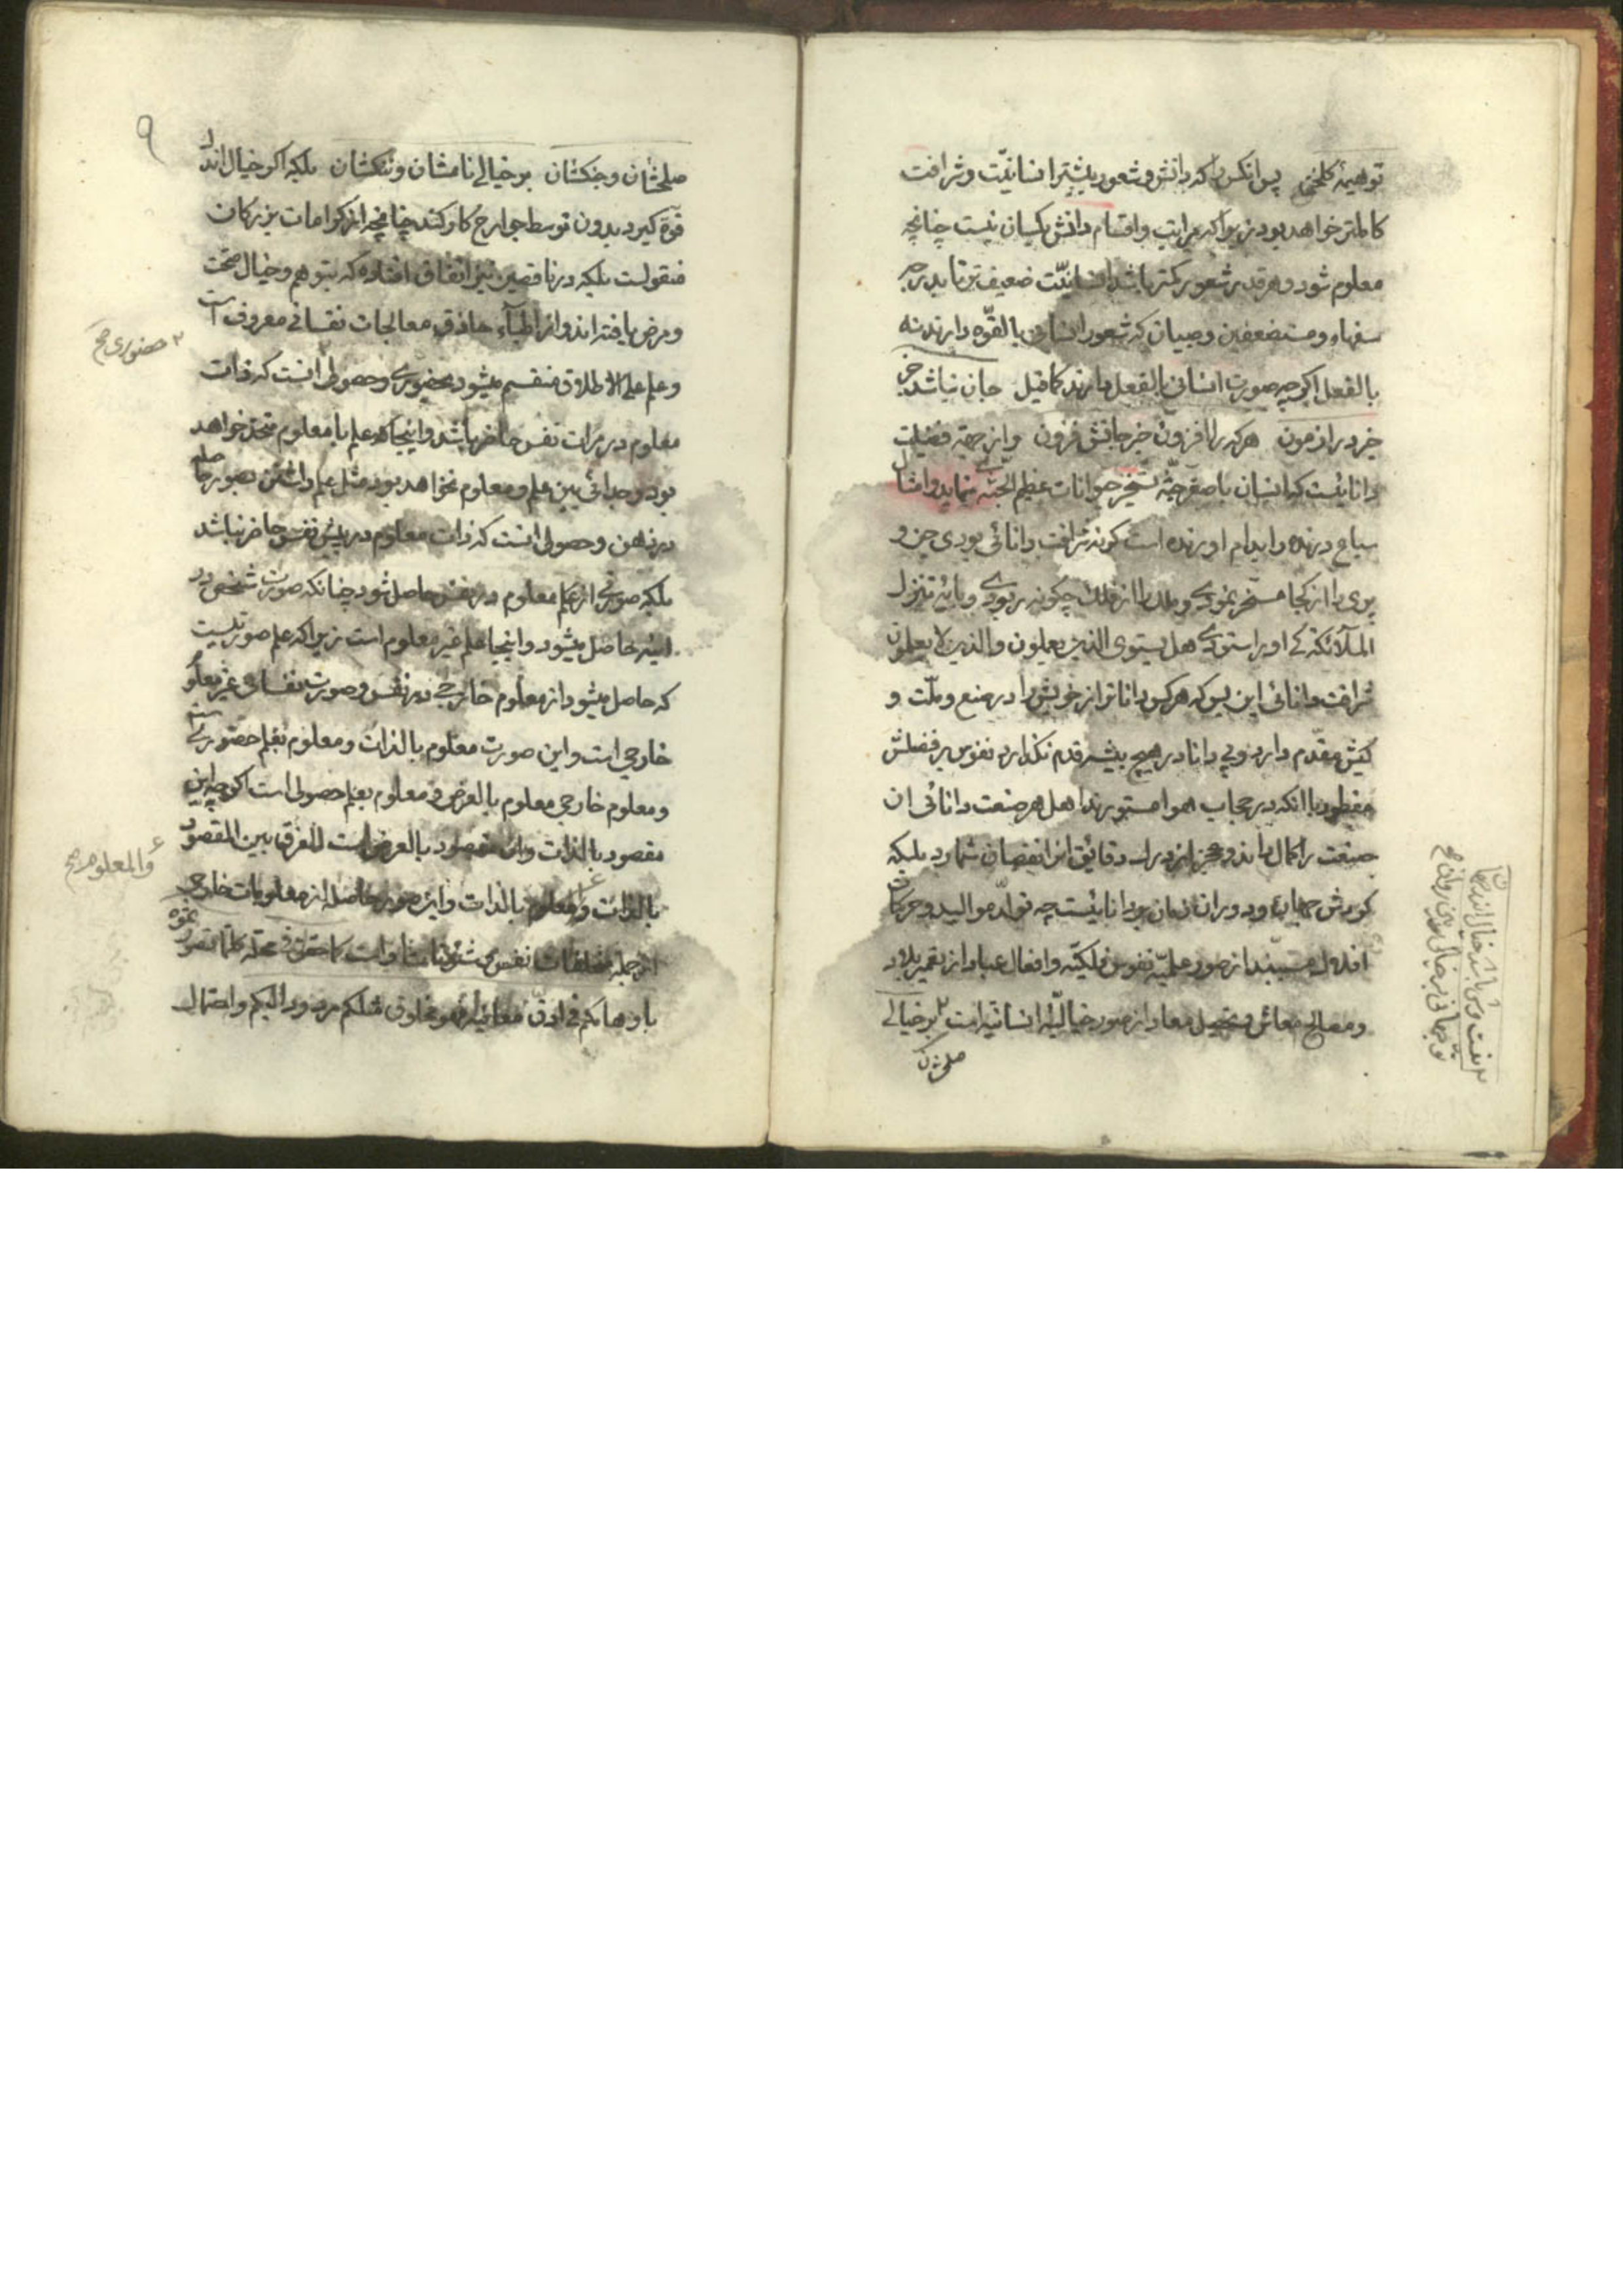 توهیمهٔ کلخنی پس انکس را که دانش و شعور بیشتر انسانیّت و شرافت
کاملتر خواهد بود زیرا که مراتب و اقسام دانش یکسان نیست چنانچه
معلوم شود و هر قدر شعور کمتر باشد انسانیّت ضعیف تر تا بدرجهٔ
سفهاء و مستضعفین و صبیان که شعور انسانی بالقوّه دارند نه
بالفعل اکرچه صورت انسانی بالفعل دارند کما قیل جان نباشد جز
خبر در ازمون هر که را افزون خبر جانش فزون و از جهة فضیلت
دانائیست که انسان با صغر جثّه تسخیر حیوانات عظیم الجثّه مینماید و امثال
سباع درنده را بدام اورنده است کرنه شرافت دانائی بودی جن و
پری را از کجا مسخر نمودی و ملک را از فلک چکونه ربودی و پایهٔ تنزل
الملآئکة کی او راستودی هل یستوی الذین یعلمون والذین لا یعلمون
شرافت دانائی این بس که هر کس داناتر از خویش را در صنع و ملّت و
کیش مقدّم دارد و بی دانا در هیچ بیشه قدم نکذارد نفوس بر فضلش
مفطور با انکه در حجاب هوا مستورند اهل هر صنعت دانائی ان
صنعت را کمال داند و عجز از درک دقایق انرا نقصان شمارد بلکه
کردش جهان و دوران زمان بر دانائیست چه تولّد موالید و حرکات
افلاک مسبّبند از صور علمیّه نفوس فلکیّه و افعال عباد از تعمیر بلاد
و مصالح معاش و تحصیل معاد از صور خیالیّهٔ انسانیّه است بر خیالی
صلحشان
نیست وش باشد خیال اندر جهان
تو جهانی بر خیالی بین روان صح
۹
صلحشان و جنکشان بر خیالی نامشان و ننکشان بلکه اکر خیال اندک
قوّة کیرد بدون توسط جوارح کار کند چنانچه از کرامات بزرکان
منقولست بلکه در ناقصین نیز اتفاق افتاده که بتوهم و خیال صحّت
و مرض یافته اند و از اطبآء حاذق معالجات نفسانی معروف است
و علم علی الاطلاق منقسم میشود بحضوری و حصولی انست که ذات
۲ حضوری صح
معلوم در مرات نفس حاضر باشد و اینجا هم علم با معلوم متحد خواهد
بود و جدائی بین علم و معلوم نخواهد بود مثل علم ذات من بصور حاصله
در ذهن و حصولی انست که ذات معلوم در پیش نفس حاضر نباشد
بلکه صورتی از علم معلوم در نفس حاصل شود چنانکه صورت شخص در
اینه حاصل میشود و اینجا علم غیر معلوم است زیرا که علم صورتیست
که حاصل میشود از معلوم خارجی در نفس و صورت نفسانی غیر معلوم
خارجی است و این صورت معلوم بالذات و معلوم بعلم حضوریست
و معلوم خارجی معلوم بالعرض و معلوم بعلم حصولی است اکرچه این
مقصود بالذات و ان مقصود بالعرض است للفرق بین المقصود
بالذات و المعلوم بالذات و این صور حاصله از معلومات خارجی
والمعلوم صح
از جمله مخلقات نفس و شئونات ذات کما حقق فی محله کلما تصورتموه
باوهامکم فی ادقّ معانیه فهو مخلوق مثلکم مردود الیکم و احتمال